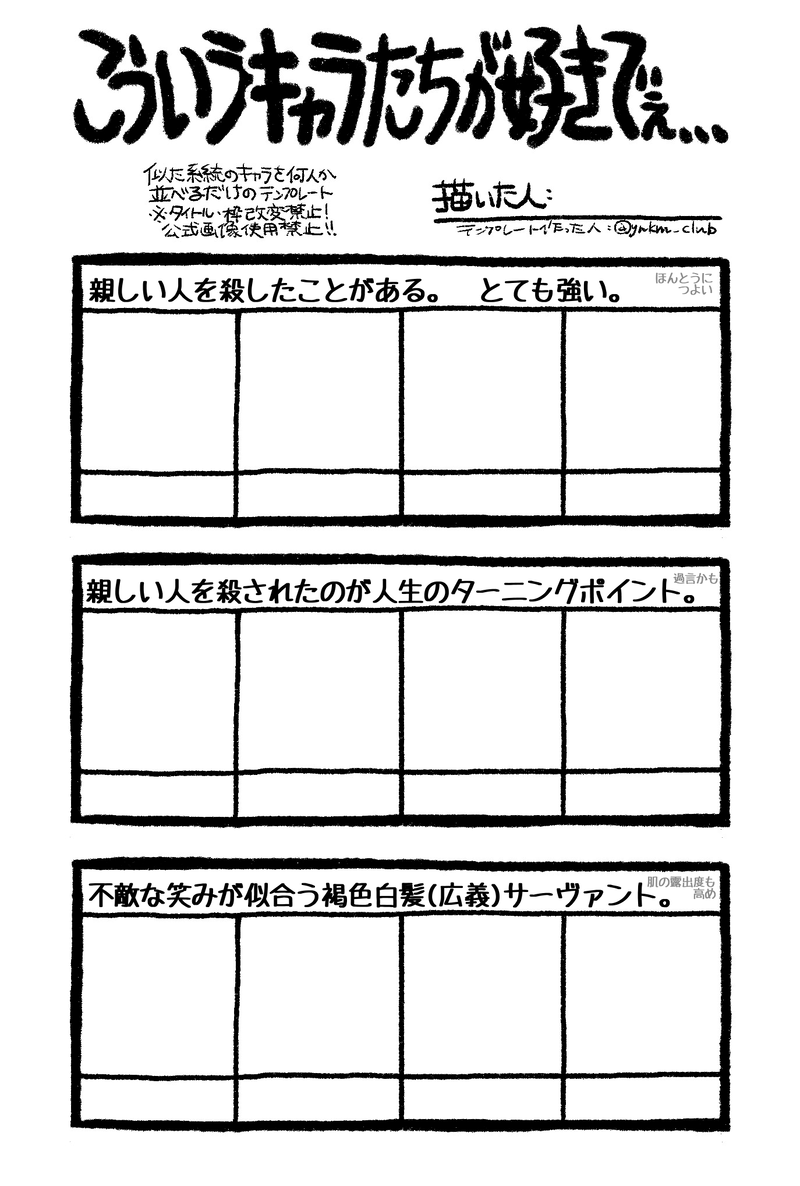 こういうキャラたちが好きでぇ...
似た系統のキャラを何人か
並べるだけのテンプレート
※タイトル・枠改変禁止!
公式画像使用禁止!!
描いた人:
テンプレート作った人:@ynkm_club
親しい人を殺したことがある。 とても強い。
ほんとうに
つよい
親しい人を殺されたのが人生のターニングポイント。
過言かも
不敵な笑みが似合う褐色白髪(広義)サーヴァント。
肌の露出度も
高め